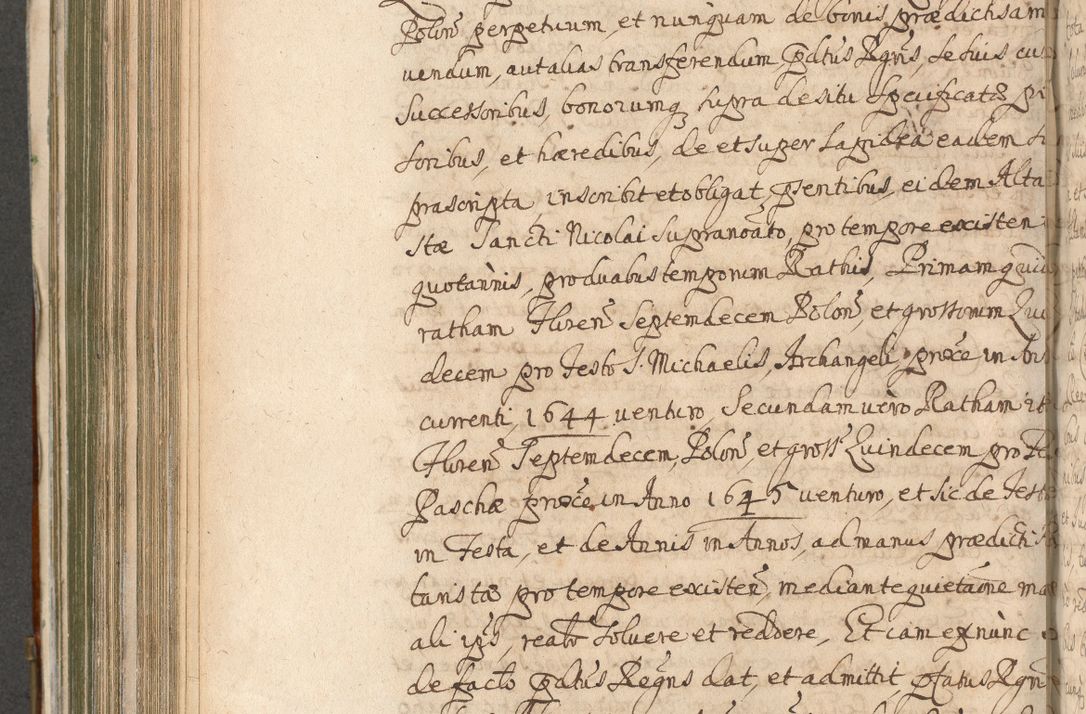 Polon̄ perpetuum, et nunquam de bonis prædictis am
uendum, aut alias transferendum, p̄datus Regn̄s, se suis cu
Successoribus, bonorumq, supra de situ specificatos
soribus, et hæredibus, de et super eadem
præscripta, inscribit et obligat, p̄sentibus, eidem Alta
stæ Sancti Nicolai supranōato, pro tempore existen
quotannis, pro duabus temporum Rathis, Primam
ratham Floren̄ Septemdecem Polon̄, et grossorum Qui
decem pro festo S. Michaelis, Archangeli, prōce in An
currenti, 1644 venturo, Secundam uero Ratham
Floren̄ Septemdecem, Polon̄, et gross̄ Quindecem pro Fe
Paschæ prōce in Anno 1645 venturo, et sic de festo
in Festa, et de Annis in Annos, ad manus prædicti
taristæ pro tempore existen̄, mediante quietāone ma
ali ip̄s, realr̄ soluere et reddere, Etiam ex nunc
de facto p̄datus Regn̄s dat, et admittit, p̄fatus Regn̄